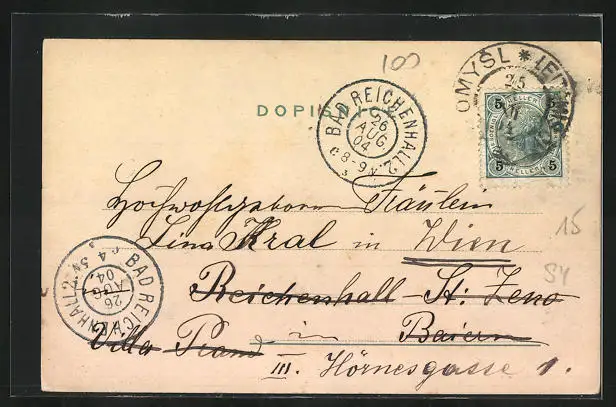 100
OMYŠL * LEITOMISCHL
25
5 HELLER 5
5 HELLER 5
DOPISNICE
BAD REICHENHALL 2
26
AUG.
04
8-9 V.
Hochwohlgeboren Fräulein
Lina Kral in Wien
15
84
Reichenhall - St. Zeno
in Baiern
Villa
III. Hörnesgasse 1.
BAD REICHENHALL 2
26
AUG
04